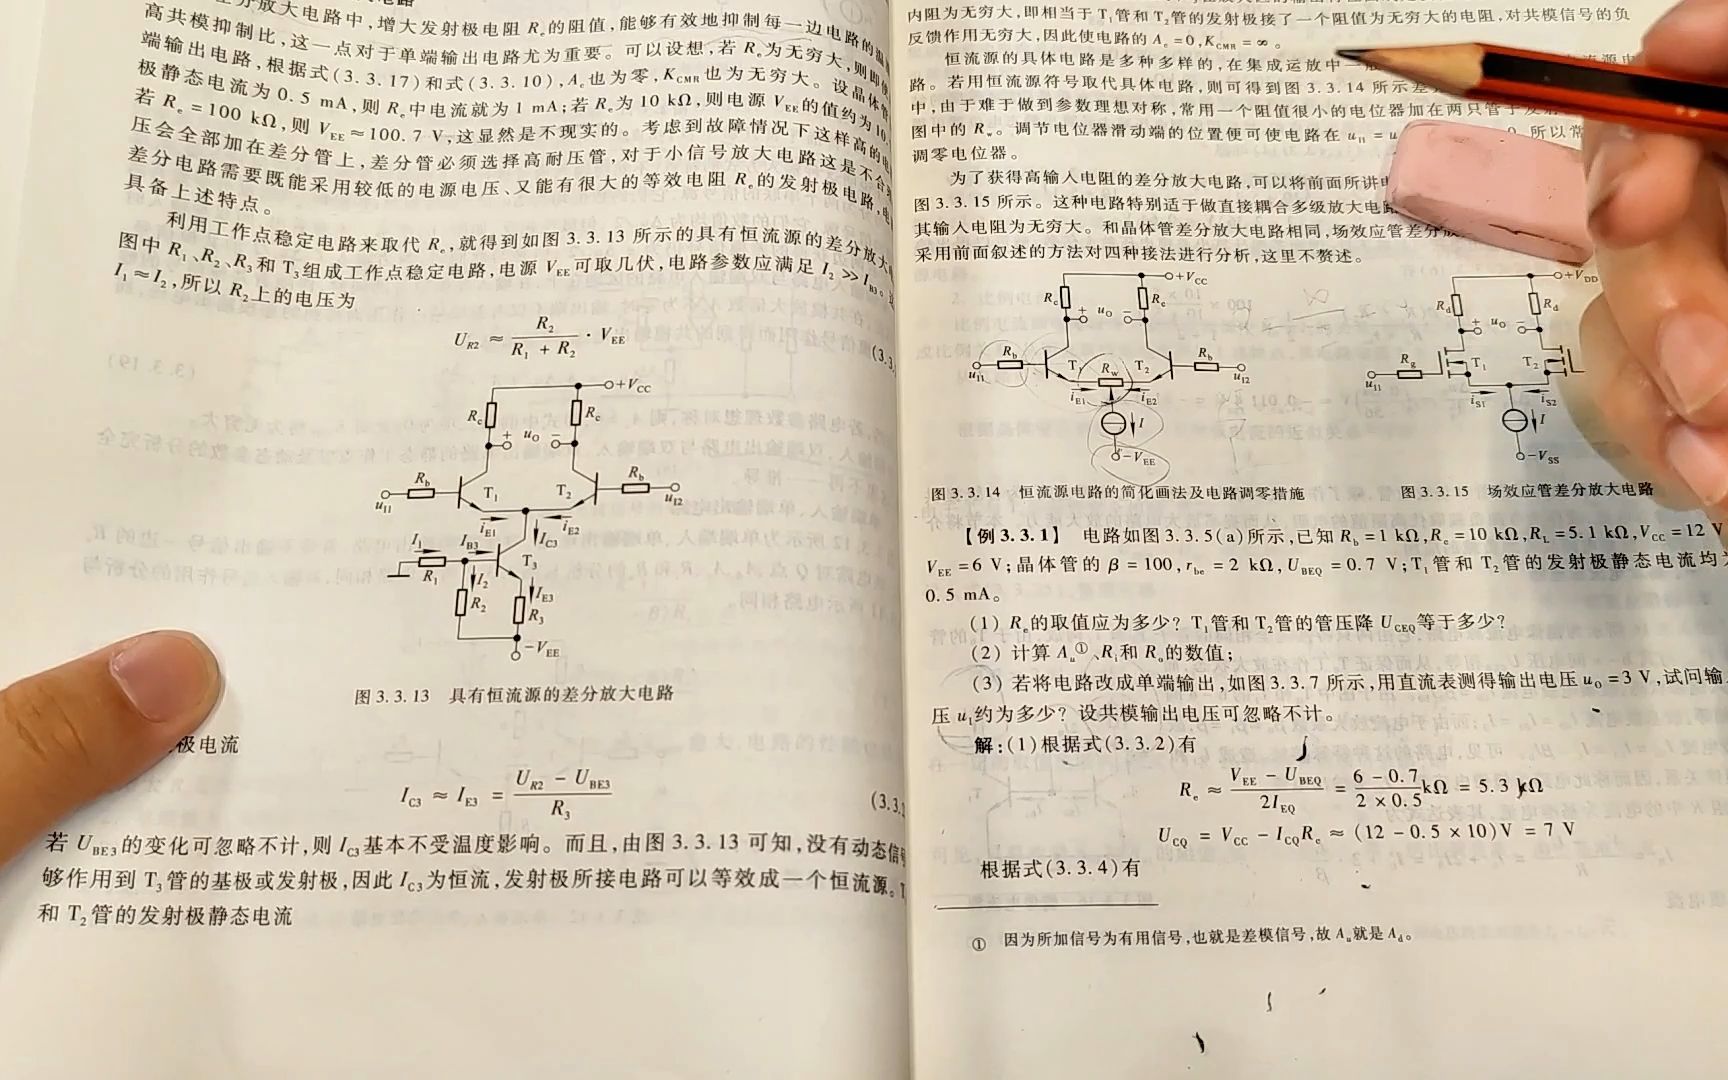 放大电路中,增大发射极电阻 Re的阻值,能够有效地抑制每一边电路的温
高共模抑制比,这一点对于单端输出电路尤为重要。可以设想,若 Re为无穷大,则即使
端输出电路,根据式(3.3.17)和式(3.3.10),Ac也为零,KCMR也为无穷大。设晶体管
极静态电流为 0.5 mA,则 Re中电流就为 1 mA;若 Re为 10 kΩ,则电源 VEE的值约为 10.
若 Re = 100 kΩ,则 VEE≈100.7 V,这显然是不现实的。考虑到故障情况下这样高的电
压会全部加在差分管上,差分管必须选择高耐压管,对于小信号放大电路这是不合
差分电路需要既能采用较低的电源电压、又能有很大的等效电阻 Re的发射极电路,电
具备上述特点。
利用工作点稳定电路来取代 Re,就得到如图 3.3.13 所示的具有恒流源的差分放大
图中 R1、R2、R3和 T3组成工作点稳定电路,电源 VEE可取几伏,电路参数应满足 I2 >> IB3。
I1≈I2,所以 R2上的电压为
UR2 ≈ R2 / (R1 + R2) · VEE
(3.3.
+VCC
Rc Rc
+ uO −
Rb T1 T2 Rb
uI1 uI2
iE1 iE2
I1 IB3 IC3
R1 I2 T3
R2 IE3 R3
−VEE
图 3.3.13 具有恒流源的差分放大电路
极电流
IC3 ≈ IE3 = (UR2 − UBE3) / R3
(3.3.
若 UBE3的变化可忽略不计,则 IC3基本不受温度影响。而且,由图 3.3.13 可知,没有动态信号
够作用到 T3管的基极或发射极,因此 IC3为恒流,发射极所接电路可以等效成一个恒流源。T
和 T2管的发射极静态电流
内阻为无穷大,即相当于 T1管和 T2管的发射极接了一个阻值为无穷大的电阻,对共模信号的负
反馈作用无穷大,因此使电路的 Ac = 0,KCMR = ∞。
恒流源的具体电路是多种多样的,在集成运放中一般
路。若用恒流源符号取代具体电路,则可得到图 3.3.14 所示差
中,由于难于做到参数理想对称,常用一个阻值很小的电位器加在两只管子发射
图中的 Rw。调节电位器滑动端的位置便可使电路在 uI1 = u 0,所以常
调零电位器。
为了获得高输入电阻的差分放大电路,可以将前面所讲电
图 3.3.15 所示。这种电路特别适于做直接耦合多级放大电路
其输入电阻为无穷大。和晶体管差分放大电路相同,场效应管差分放
采用前面叙述的方法对四种接法进行分析,这里不赘述。
+VCC
Rc Rc
+ uO −
Rb T1 Rw T2 Rb
uI1 uI2
iE1 iE2
I
−VEE
+VDD
Rd Rd
+ uO −
Rg T1 T2
uI1
iS1 iS2
I
−VSS
图 3.3.14 恒流源电路的简化画法及电路调零措施
图 3.3.15 场效应管差分放大电路
【例 3.3.1】 电路如图 3.3.5(a)所示,已知 Rb = 1 kΩ,Rc = 10 kΩ,RL = 5.1 kΩ,VCC = 12 V
VEE = 6 V;晶体管的 β = 100,rbe = 2 kΩ,UBEQ = 0.7 V;T1管和 T2管的发射极静态电流均为
0.5 mA。
(1) Re的取值应为多少? T1管和 T2管的管压降 UCEQ等于多少?
(2) 计算 Au①、Ri和 Ro的数值;
(3) 若将电路改成单端输出,如图 3.3.7 所示,用直流表测得输出电压 uO = 3 V,试问输
压 uI约为多少? 设共模输出电压可忽略不计。
解:(1)根据式(3.3.2)有
Re ≈ (VEE − UBEQ) / 2IEQ = (6 − 0.7) / (2 × 0.5) kΩ = 5.3 kΩ
UCQ = VCC − ICQRc ≈ (12 − 0.5 × 10)V = 7 V
根据式(3.3.4)有
① 因为所加信号为有用信号,也就是差模信号,故 Au就是 Ad。